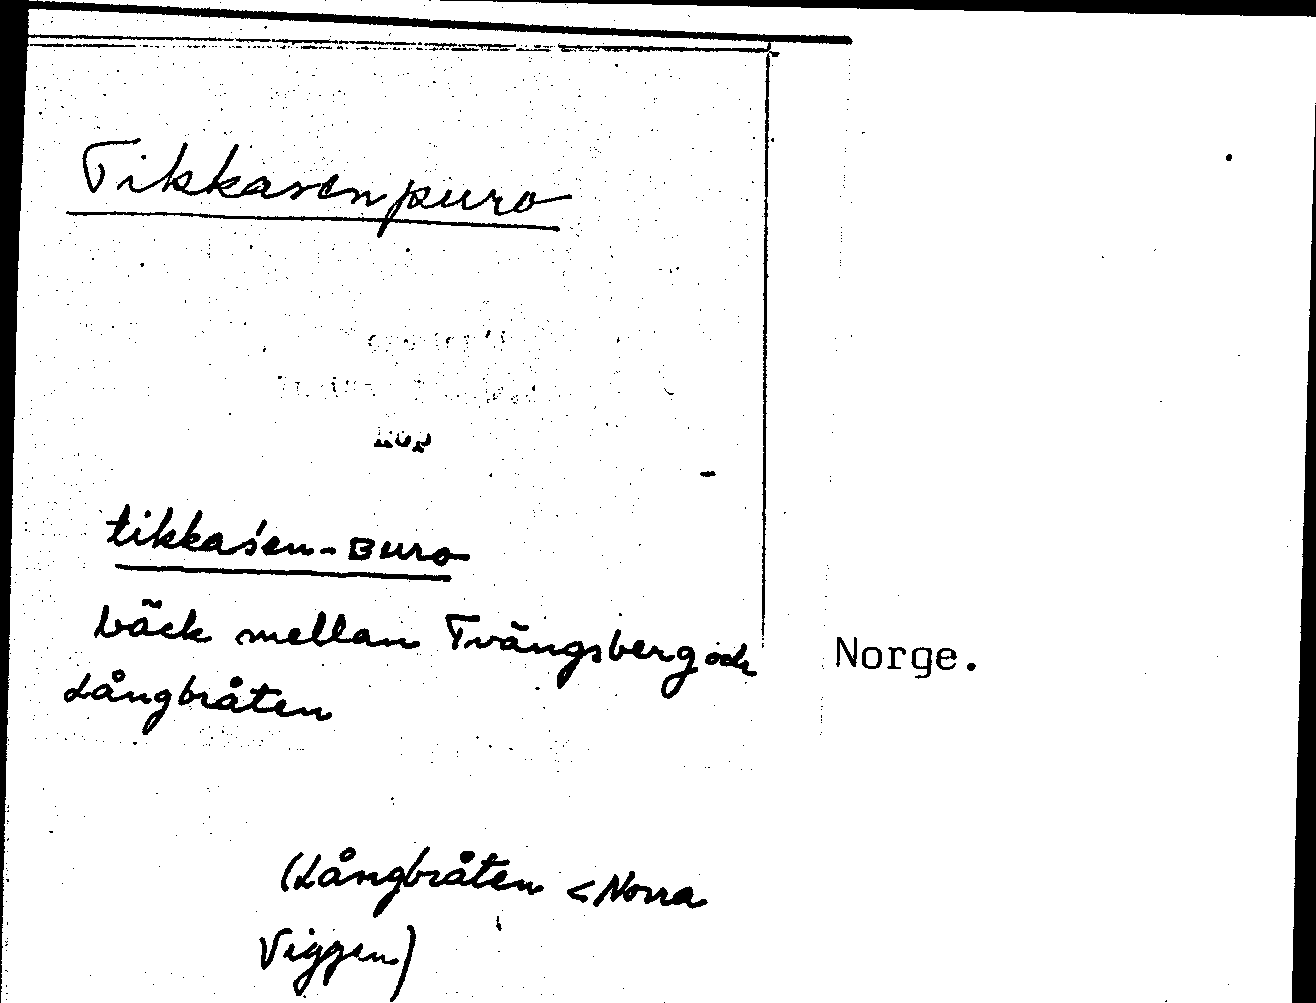 Tikkasenpuro
tikkaśen-ʙuro
bäck mellan Tvängsberg och
Långbråten
Norge.
(Långbråten < Norra
Viggen)